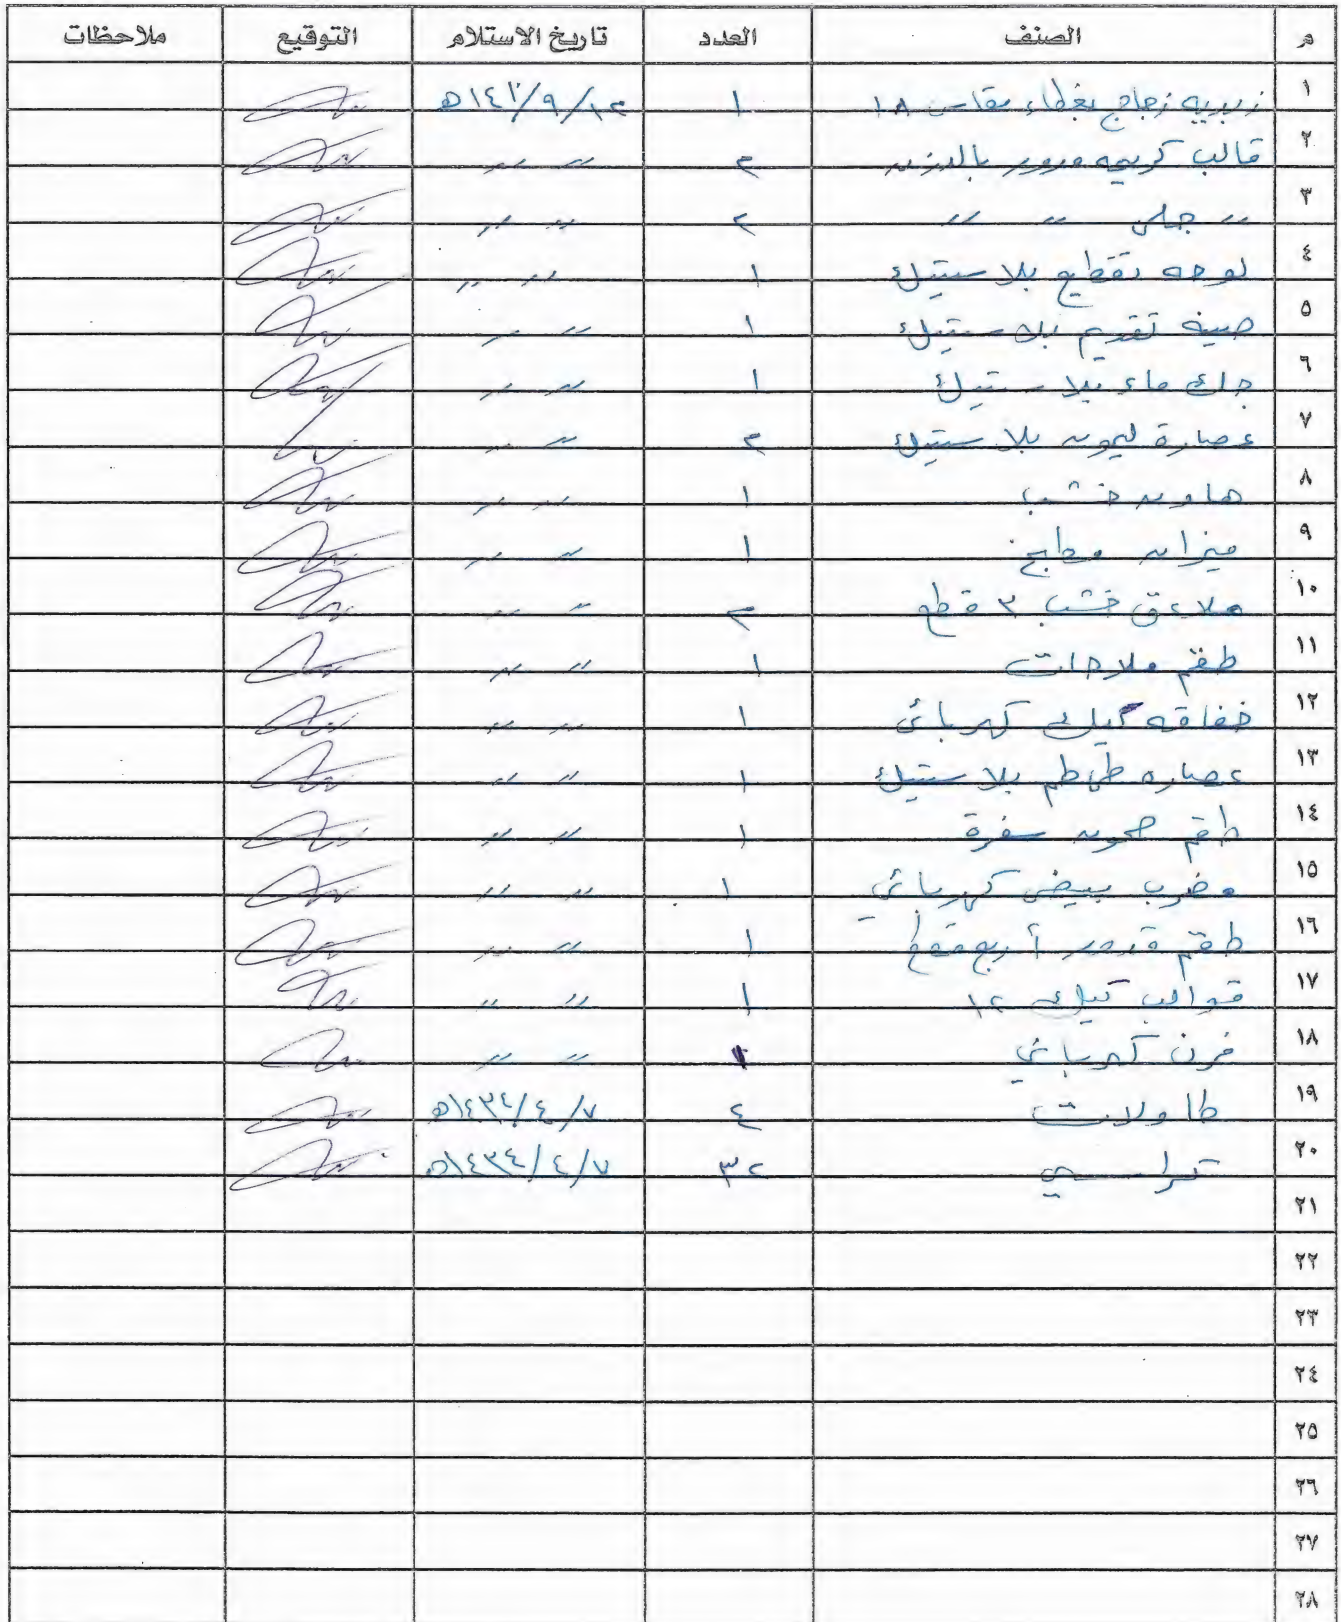 م الصنف العدد تاريخ الاستلام التوقيع ملاحظات
١ زبديه زجاج بغطاء مقاس ١٨ ١
٢ قالب كريمه مدور ٢ 〃 〃
٣ 〃 جلي 〃 〃 ٢ 〃 〃
٤ لوحه تقطيع بلاستيك ١ 〃 〃
٥ صينه تقديم بلاستيك ١ 〃 〃
٦ جك ماء بلاستيك ١ 〃 〃
٧ عصارة ليمون بلاستيك ٢ 〃 〃
٨ هاون خشب ١ 〃 〃
٩ ميزان مطابخ ١ 〃 〃
١٠ ملاعق خشب ٣ قطع ٢ 〃 〃
١١ طقم ملاحات ١ 〃 〃
١٢ خفاقه كيك كهربائي ١ 〃 〃
١٣ عصاره طماطم بلاستيك ١ 〃 〃
١٤ طقم صحون سفرة ١ 〃 〃
١٥ مضرب بيض كهربائي ١ 〃 〃
١٦ طقم قدور أربع قطع ١ 〃 〃
١٧ قوالب كيك ١٢ ١ 〃 〃
١٨ فرن كهربائي ١ 〃 〃
١٩ طاولات ٤ ٧/٤/١٤٣٤ه
٢٠ كراسي ٣٢ ٧/٤/١٤٣٤ه
٢١
٢٢
٢٣
٢٤
٢٥
٢٦
٢٧
٢٨